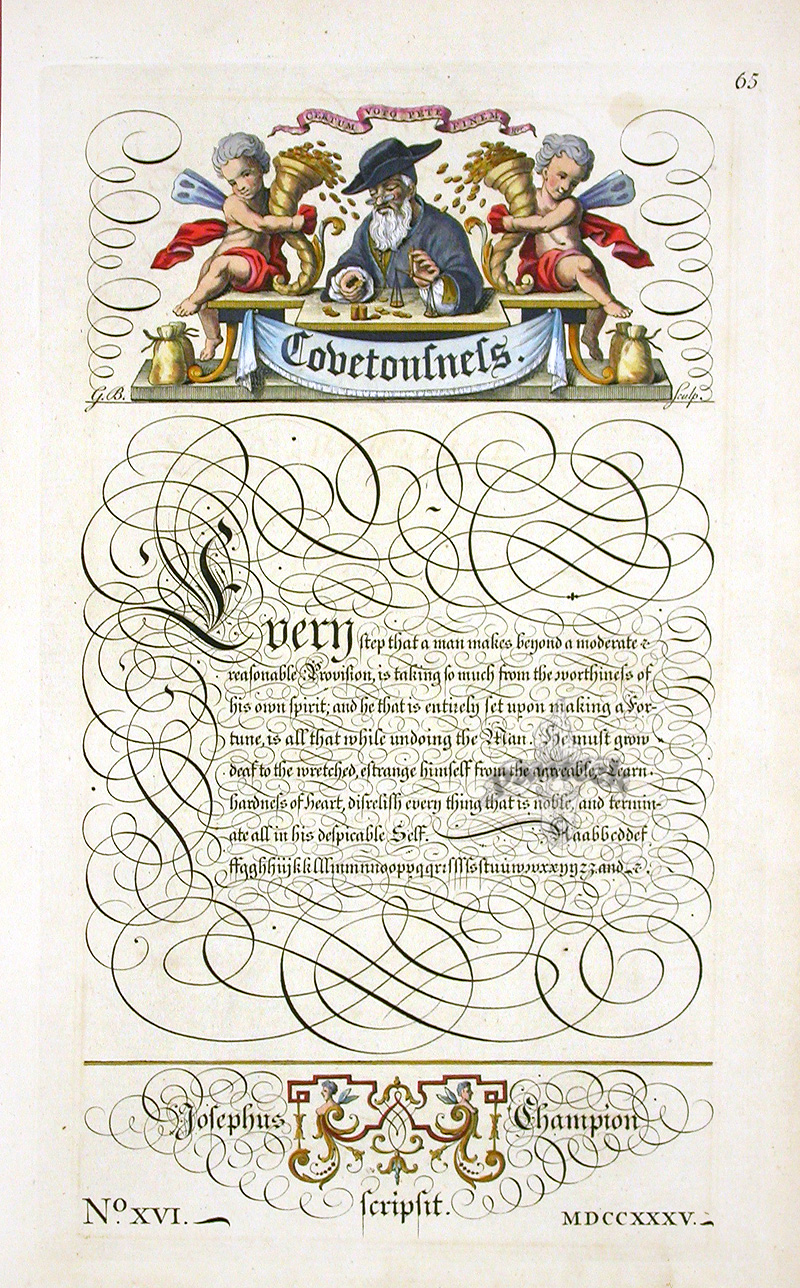 65
CERTUM VOTO PETE FINEM
Covetouſneſs.
G.B. Sculp.
Every ſtep that a man makes beyond a moderate &
reasonable Proviſion, is taking ſo much from the worthineſs of
his own ſpirit; and he that is entirely ſet upon making a For-
tune, is all that while undoing the Man. He muſt grow
deaf to the wretched, eſtrange himſelf from the agreeable, Learn
hardneſs of Heart, diſreliſh every thing that is noble, and termin-
ate all in his deſpicable Self. Aaabbcddef
Joſephus Champion
ſcripſit.
No. XVI. MDCCXXXV.